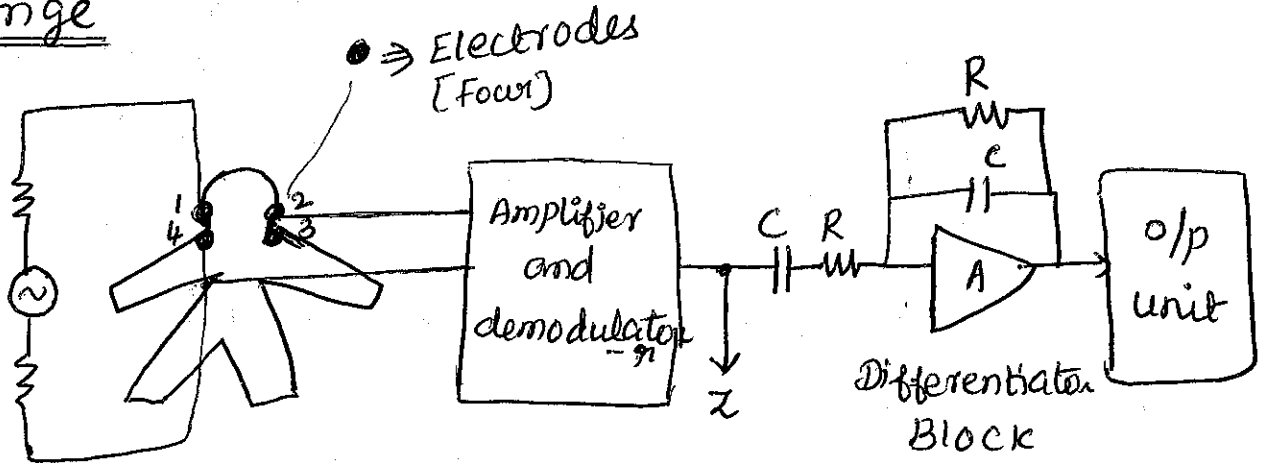 nge
⇒ Electrodes
[Four]
1
2
4
3
Amplifier
and
demodulator
-r
Z
C
R
R
C
A
Differentiator
Block
O/P
unit